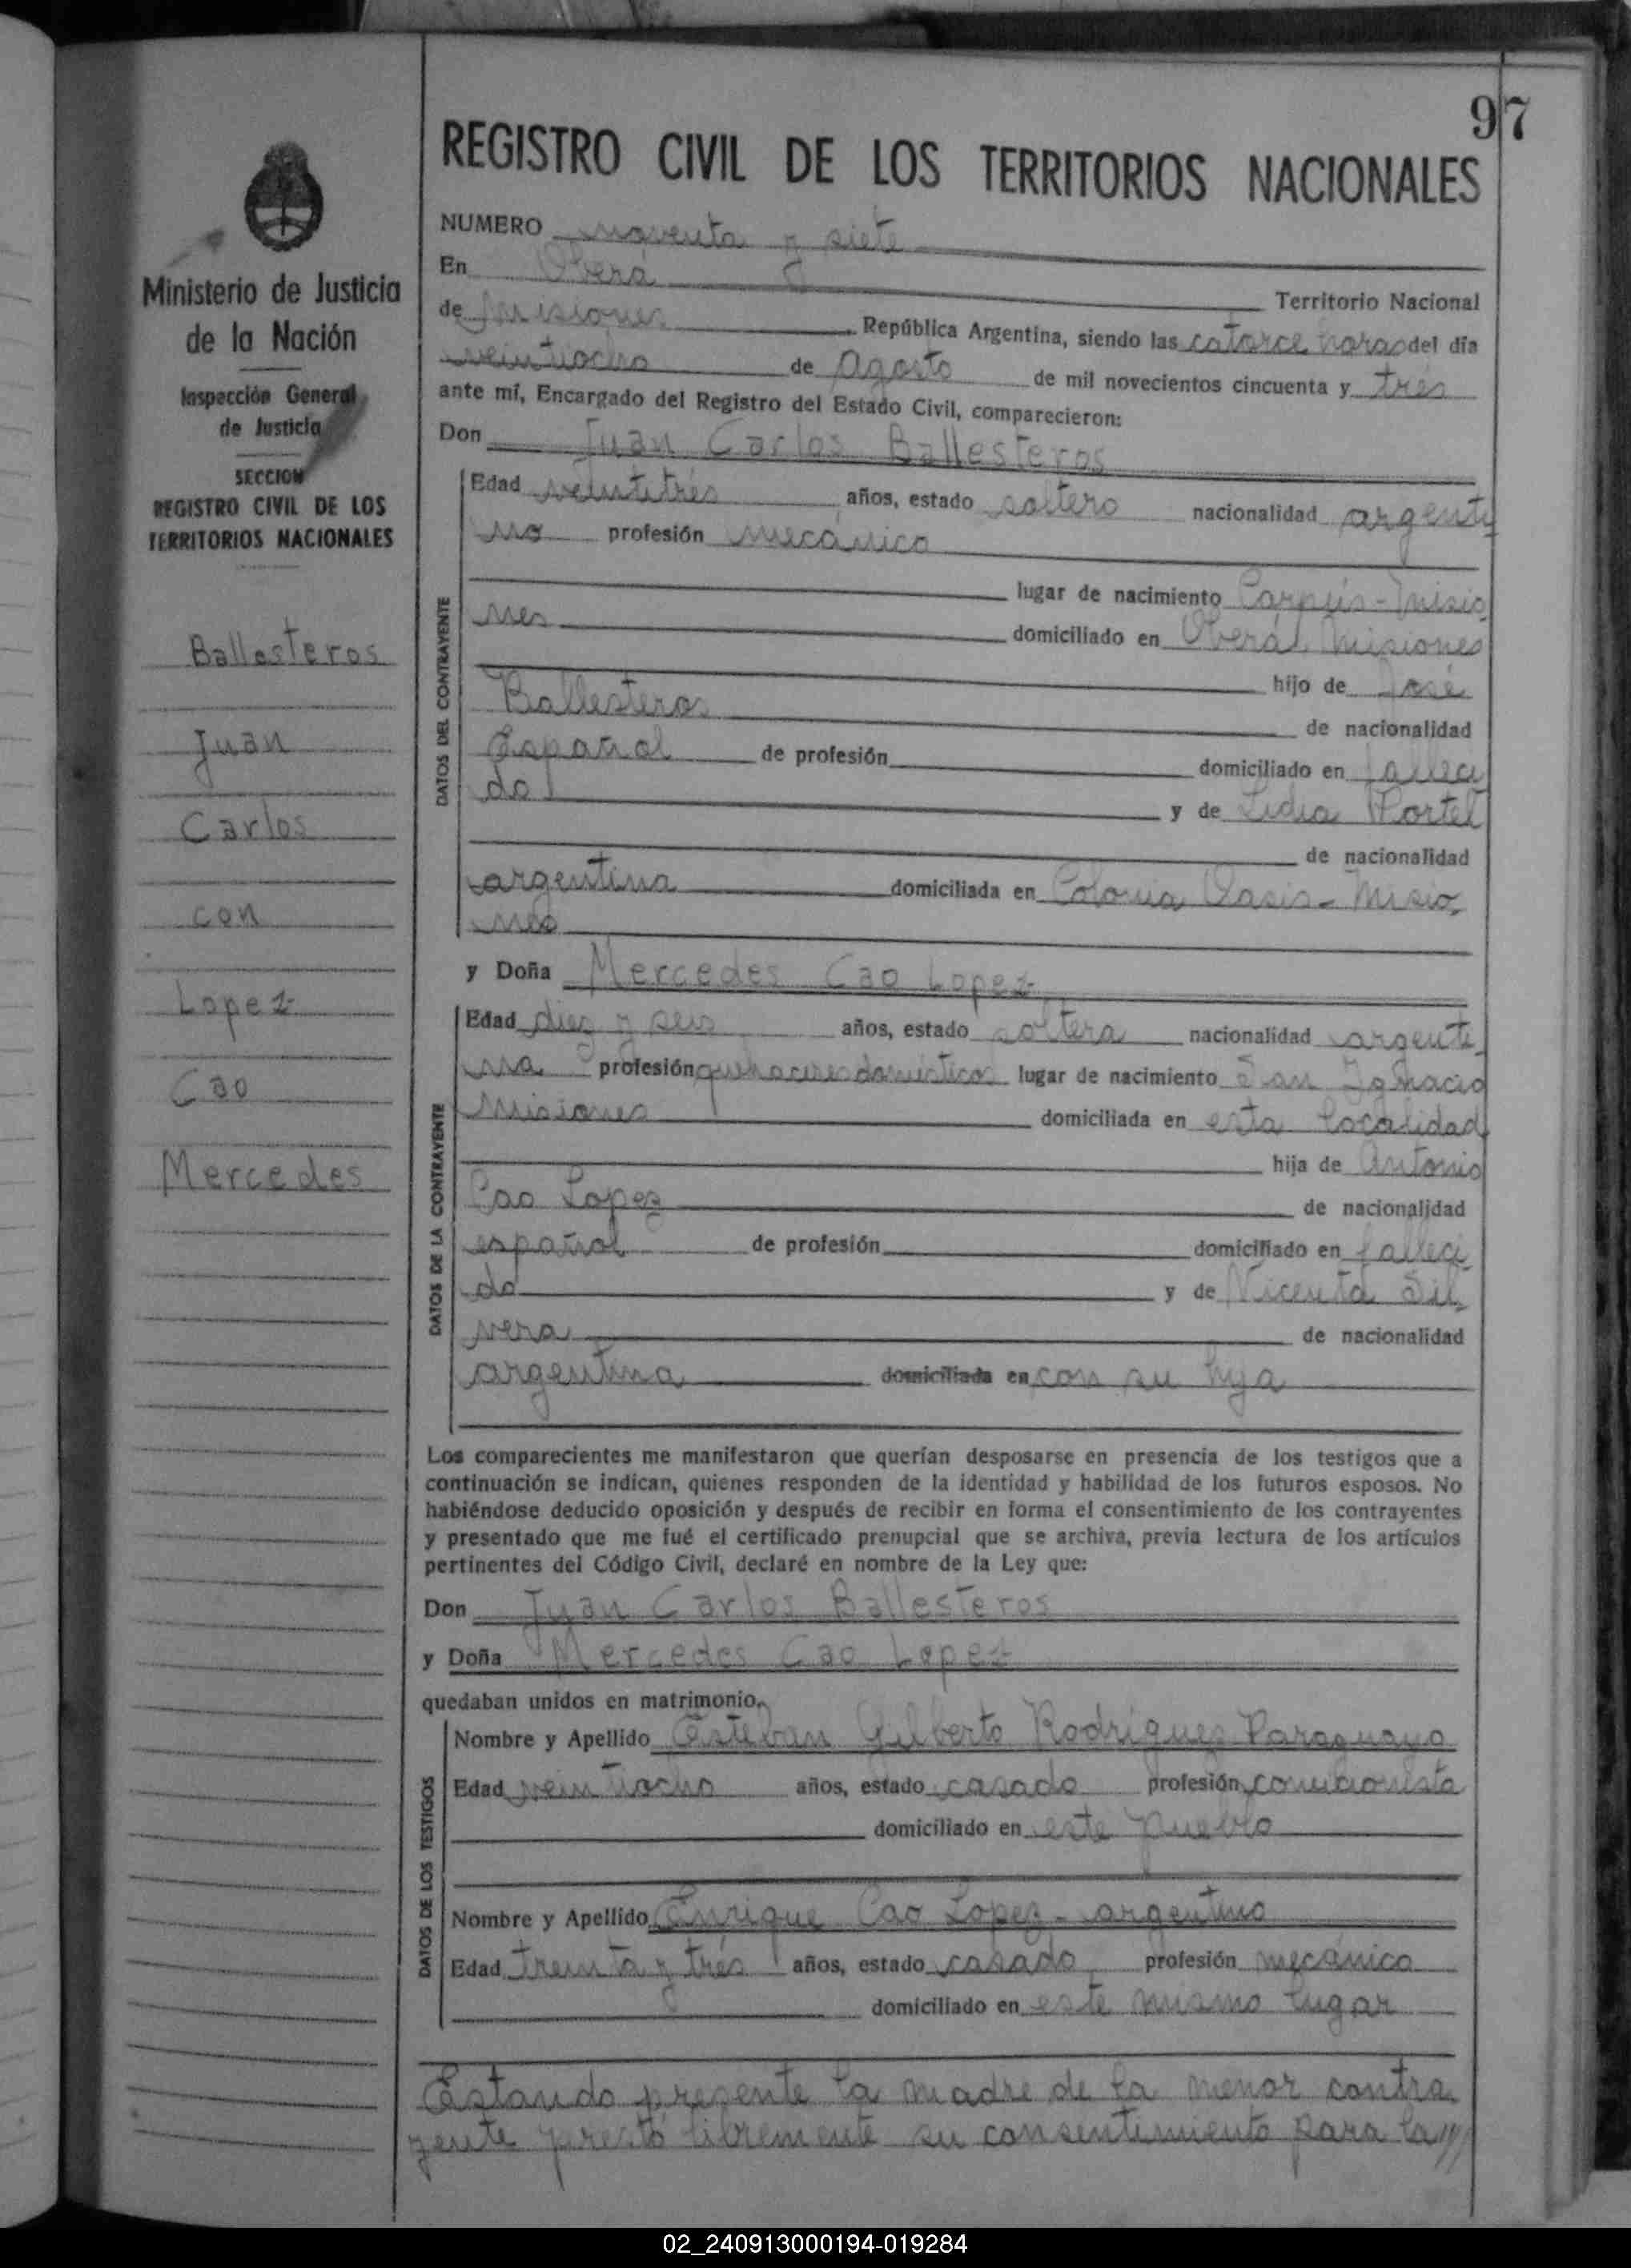 97
REGISTRO CIVIL DE LOS TERRITORIOS NACIONALES
Ministerio de Justicia
de la Nación
Inspección General
de Justicia
SECCION
REGISTRO CIVIL DE LOS
TERRITORIOS NACIONALES
Ballesteros
Juan
Carlos
con
Lopez
Cao
Mercedes
NUMERO noventa y siete
En Oberá Territorio Nacional
de Misiones República Argentina, siendo las catorce horas del día
veintiocho de Agosto de mil novecientos cincuenta y tres
ante mí, Encargado del Registro del Estado Civil, comparecieron:
Don Juan Carlos Ballesteros
DATOS DEL CONTRAYENTE
Edad veintitrés años, estado soltero nacionalidad argenti
no profesión mecánico
lugar de nacimiento Corpus - Misio
nes domiciliado en Oberá, Misiones
hijo de José
Ballesteros de nacionalidad
Español de profesión domiciliado en falleci
do y de Lidia Portel
de nacionalidad
argentina domiciliada en Colonia Oasis - Misio-
nes
y Doña Mercedes Cao Lopez
DATOS DE LA CONTRAYENTE
Edad diez y seis años, estado soltera nacionalidad argenti-
na profesión quehaceres domésticos lugar de nacimiento San Ignacio
Misiones domiciliada en esta localidad
hija de Antonio
Cao Lopez de nacionalidad
español de profesión domiciliado en falleci-
do y de Vicenta Sil-
vera de nacionalidad
argentina domiciliada en con su hija
Los comparecientes me manifestaron que querían desposarse en presencia de los testigos que a
continuación se indican, quienes responden de la identidad y habilidad de los futuros esposos. No
habiéndose deducido oposición y después de recibir en forma el consentimiento de los contrayentes
y presentado que me fué el certificado prenupcial que se archiva, previa lectura de los artículos
pertinentes del Código Civil, declaré en nombre de la Ley que:
Don Juan Carlos Ballesteros
y Doña Mercedes Cao Lopez
quedaban unidos en matrimonio.
DATOS DE LOS TESTIGOS
Nombre y Apellido Esteban Gilberto Rodriguez Paraguayo
Edad veintiocho años, estado casado profesión comicionista
domiciliado en este pueblo
Nombre y Apellido Enrique Cao Lopez - argentino
Edad treinta y trés años, estado casado profesión mecánico
domiciliado en este mismo lugar
Estando presente la madre de la menor contra
yente prestó libremente su consentimiento para la///
02_240913000194-019284